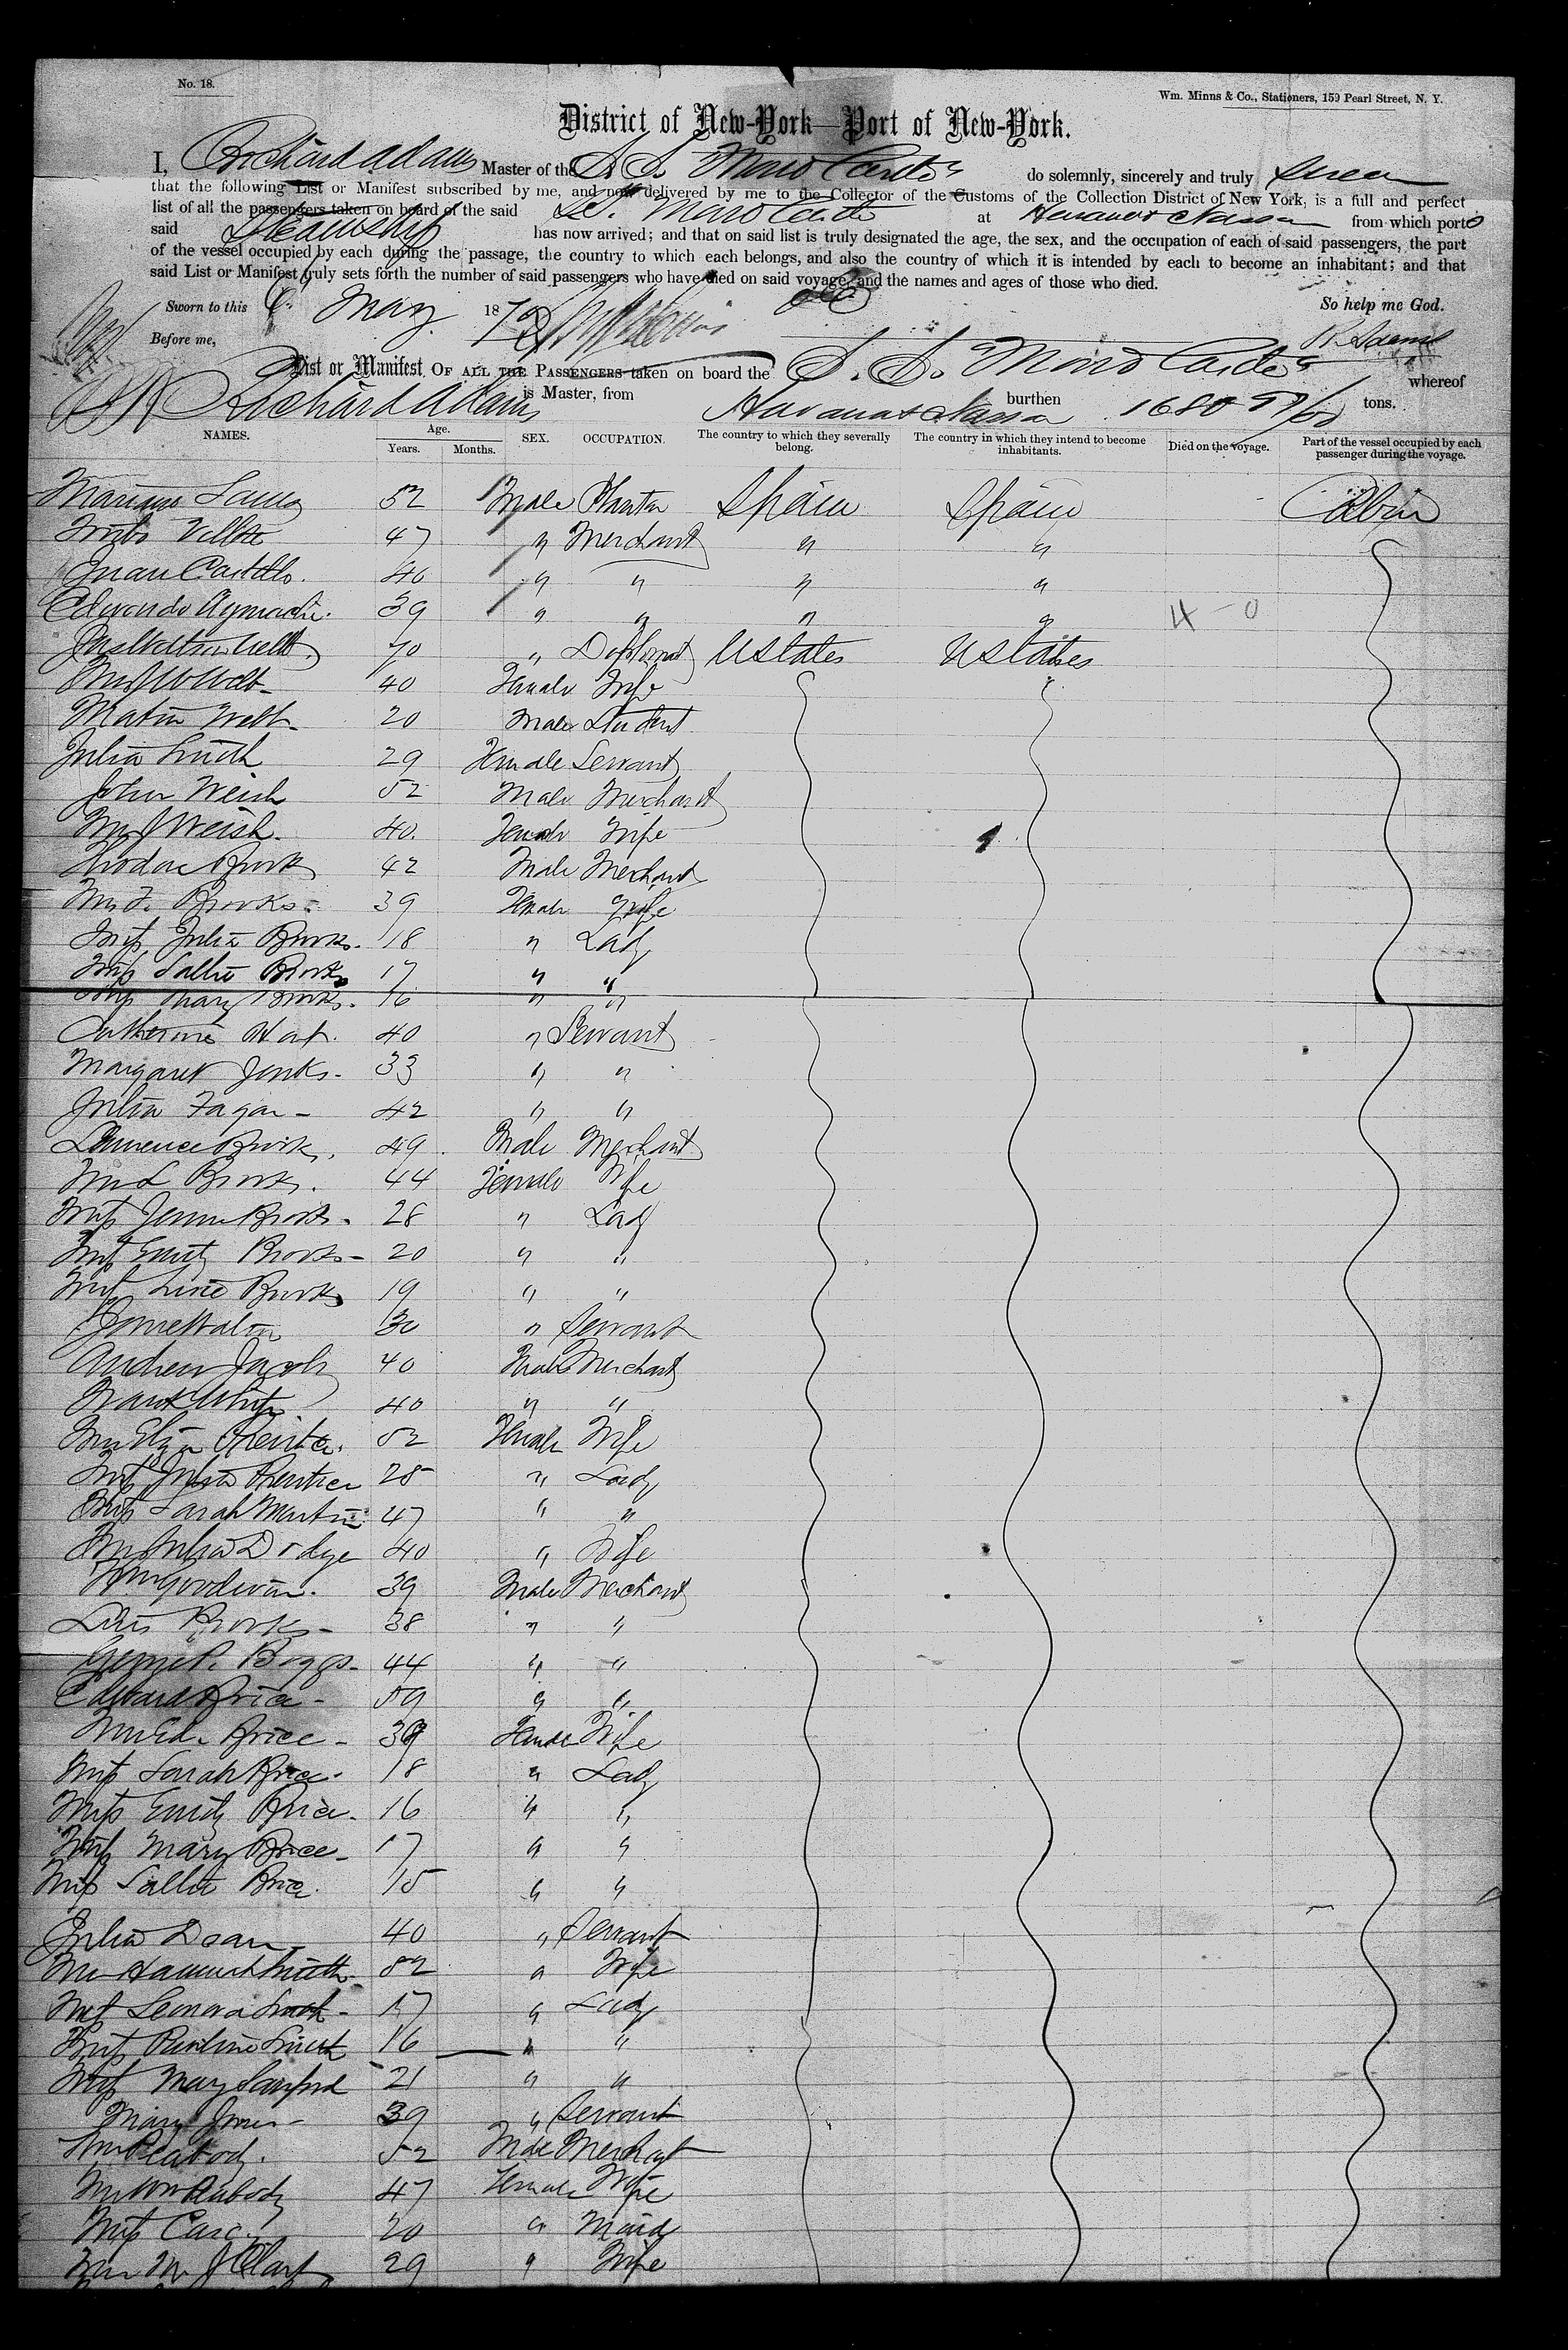 No. 18.
Wm. Minns & Co., Stationers, 159 Pearl Street, N. Y.
District of New-York Port of New-York.
I, Richard Adams Master of the S. S. "Moro Castle" do solemnly, sincerely and truly swear
that the following List or Manifest subscribed by me, and now delivered by me to the Collector of the Customs of the Collection District of New York, is a full and perfect
list of all the passengers taken on board of the said SS. Moro Castle at Havana & Nassau from which port
said Steamship has now arrived; and that on said list is truly designated the age, the sex, and the occupation of each of said passengers, the part
of the vessel occupied by each during the passage, the country to which each belongs, and also the country of which it is intended by each to become an inhabitant; and that
said List or Manifest truly sets forth the number of said passengers who have died on said voyage, and the names and ages of those who died.
Sworn to this 6 May 187 So help me God.
Before me, R. Adams
List or Manifest OF ALL THE PASSENGERS taken on board the S. S. "Moro Castle" whereof
Richard Adams is Master, from Havana & Nassau burthen 1680 tons.
NAMES. Age. Years. Months. SEX. OCCUPATION. The country to which they severally belong. The country in which they intend to become inhabitants. Died on the voyage. Part of the vessel occupied by each passenger during the voyage.
52 Male Spain Spain Cabin
47 " Merchant " "
Juan Castillo. 40 " " " "
39 " " " " 4 - 0
70 " Diplomat U States U States
40 Female Wife
Webb 20 Male Student
Julia Smith 29 Female Servant
John Welsh 52 Male Merchant
Mrs J Welsh. 40. Female Wife
Theodore Brooks 42 Male Merchant
Mrs T. Brooks - 39 Female Wife
Miss Julia Brooks. 18 " Lady
Miss Sallie Brooks 17 " "
Miss Mary Brooks. 16 " "
Catherine 40 " Servant
Margaret Jenks - 33 " "
Julia Fagan - 42 " "
Lawrence Brooks. 49 Male Merchant
Mrs L Brooks. 44 Female Wife
Miss Jennie Brooks. 28 " Lady
Miss Emily Brooks - 20 " "
Miss Brooks 19 " "
30 " Servant
Andrew Jacobs 40 Male Merchant
Frank White 40 " "
Mrs Eliza 52 Female Wife
Miss Julia 25 " Lady
Miss Sarah Martin 47 " "
Mrs Julia Dodge 40 " Wife
Wm Goodwin. 39 Male Merchant
Brooks - 38 " "
George P. Boggs - 44 " "
Edward Brice - 59 " "
Mrs Ed. Brice - 39 Female Wife
Miss Sarah Brice - 18 " Lady
Miss Emily Brice. 16 " "
Miss Mary Brice - 17 " "
Miss Sallie Brice. 15 " "
Julia Dean - 40 " Servant
Mrs Hannah Smith - 52 " Wife
Miss Leonora Smith - 17 " Lady
Miss Pauline Smith 16 " "
Miss Mary Sanford 21 " "
Mary Jones - 39 " Servant
Wm Peabody. 52 Male Merchant
Mrs Wm Peabody 47 Female Wife
Miss 20 " Maid
Mrs M. J Clark 29 " Wife